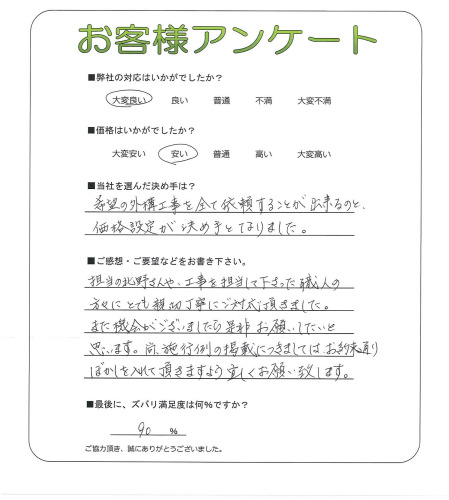 お客様アンケート
■弊社の対応はいかがでしたか？
大変良い 良い 普通 不満 大変不満
■価格はいかがでしたか？
大変安い 安い 普通 高い 大変高い
■当社を選んだ決め手は？
希望の外構工事を全て依頼することが出来るのと、
価格設定が決め手となりました。
■ご感想・ご要望などをお書き下さい。
担当の北野さんや、工事を担当して下さった職人の
方々にとても親切丁寧にご対応頂きました。
また機会がございましたら是非お願いしたいと
思います。尚、施行例の掲載につきましては、お約束通り
ぼかしを入れて頂きますよう宜しくお願い致します。
■最後に、ズバリ満足度は何％ですか？
90 ％
ご協力頂き、誠にありがとうございました。